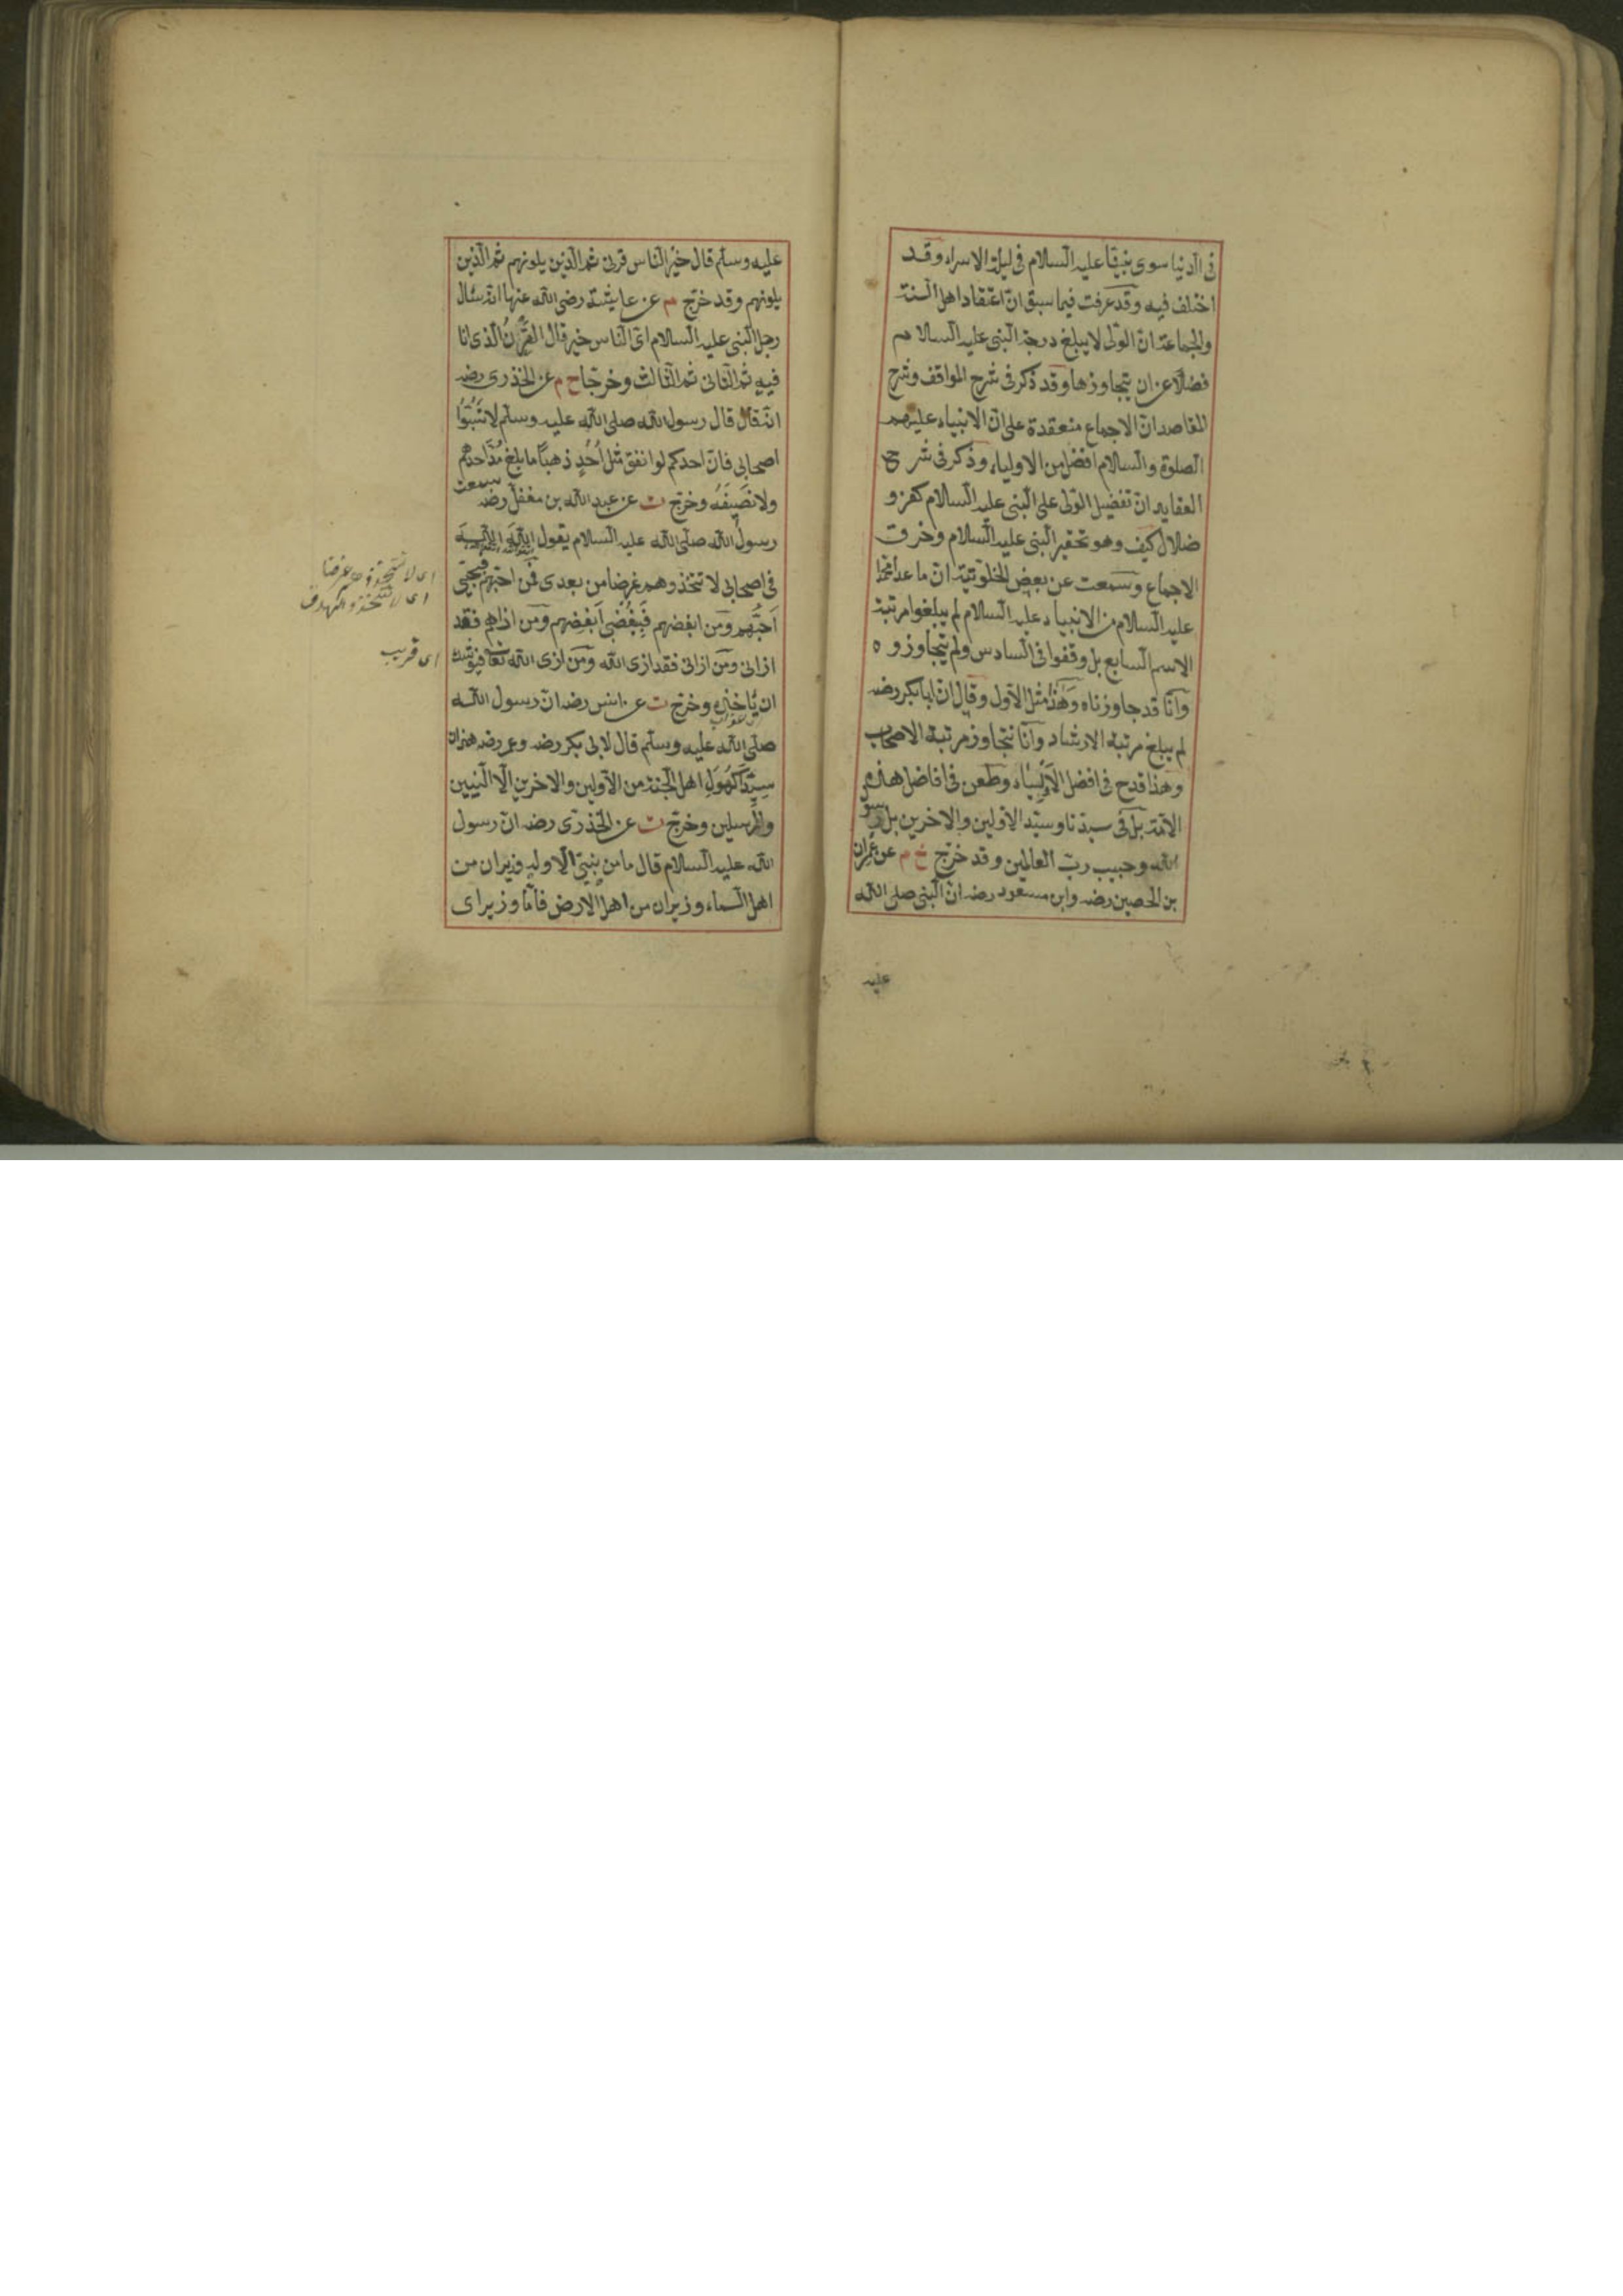 في الدنيا سوى نبينا عليه السلام في ليلة الاسراء وقد
اختلف فيه وقد عرفت فيما سبق ان اعتقاد اهل السنة
والجماعة ان الولي لا يبلغ درجة النبي عليه السلام
فضلا عن ان يتجاوزها وقد ذكر في شرح المواقف وشرح
المقاصد ان الاجماع منعقدة على ان الانبياء عليهم
الصلوة والسلام افضل من الاولياء وذكر في شرح
العقايد ان تفضيل الولي على النبي عليه السلام كفر و
ضلال كيف وهو تحقير النبي عليه السلام وخرق
الاجماع وسمعت عن بعض الخلوتية ان ما عدا محمد
عليه السلام من الانبياء عليه السلام لم يبلغوا مرتبة
الاسم السابع بل وقفوا في السادس ولم يتجاوزوه
وانا قد جاوزناه وهذا مثل الاول وقال ان ابا بكر رضه
لم يبلغ مرتبة الارشاد وانا نتجاوز مرتبة الاصحاب
وهذا قدح في افضل الاولياء وطعن في افاضل هذه
الامة بل في سيدنا وسيد الاولين والاخرين بل رسول
الله وحبيب رب العالمين وقد خرج خ م عن عمران
بن الحصين رضه وابن مسعود رضه ان النبي صلى الله
عليه
عليه وسلم قال خير الناس قرني ثم الذين يلونهم ثم الذين
يلونهم وقد خرج م عن عايشة رضى الله عنها انه سئال
رجل النبي عليه السلام اي الناس خير قال القرن الذي انا
فيه ثم الثاني ثم الثالث وخرجا خ م عن الخذري رضه
انه قال قال رسول الله صلى الله عليه وسلم لا تسبوا
اصحابي فان احدكم لو انفق مثل احد ذهبا ما بلغ مد احدهم
ولا نصيفه وخرج ت عن عبد الله بن مغفل رضه سمعت
رسول الله صلى الله عليه السلام يقول الله الله
في اصحابي لا تتخذوهم غرضا من بعدى فمن احبهم فبحبي
احبهم ومن ابغضهم فببغضي ابغضهم ومن اذاهم فقد
اذاني ومن اذاني فقد اذى الله ومن اذى الله تعا فيوشك
ان ياخذه وخرج ت عن انس رضه ان رسول الله
صلى الله عليه وسلم قال لابي بكر رضه وعمر رضه هذان
سيدا كهول اهل الجنة من الاولين والاخرين الا النبيين
والمرسلين وخرج ت عن الخذري رضه ان رسول
الله عليه السلام قال ما من نبي الا وله وزيران من
اهل السماء وزيران من اهل الارض فاما وزيراى
اى لا تتخذوهم غرضا
اى لا تتخذوا كهدف
اى قريب